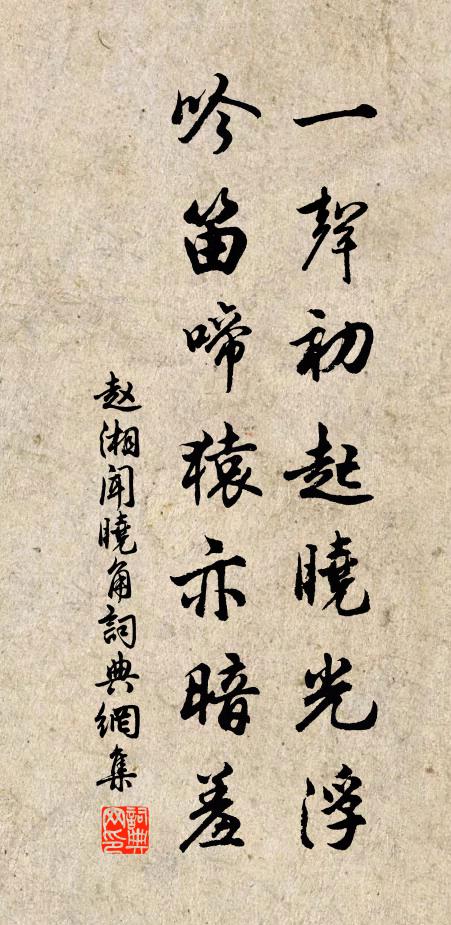 一聲初起曉光浮
吟笛啼猿亦暗羞
赵湘闻曉角詞典網集
詞典
网印